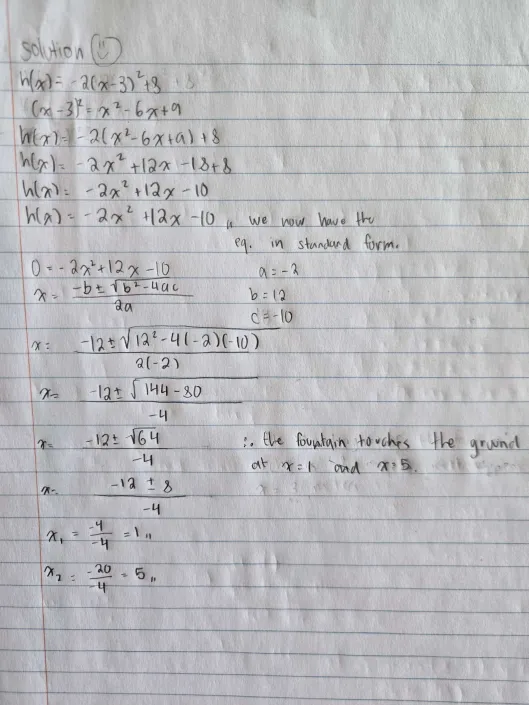 Solution
h(x) = -2(x-3)²+8
(x-3)² = x²-6x+9
h(x) = -2(x²-6x+9)+8
h(x) = -2x²+12x-18+8
h(x) = -2x²+12x-10
h(x) = -2x²+12x-10 ,, we now have the
eq. in standard form.
0 = -2x²+12x-10
a = -2
x = -b ± √b²-4ac / 2a
b = 12
c = -10
x = -12 ± √12²-4(-2)(-10) / 2(-2)
x = -12 ± √144-80 / -4
x = -12 ± √64 / -4
∴ the fountain touches the ground
at x=1 and x=5.
x = -12 ± 8 / -4
x₁ = -4/-4 = 1 ,,
x₂ = -20/-4 = 5 ,,